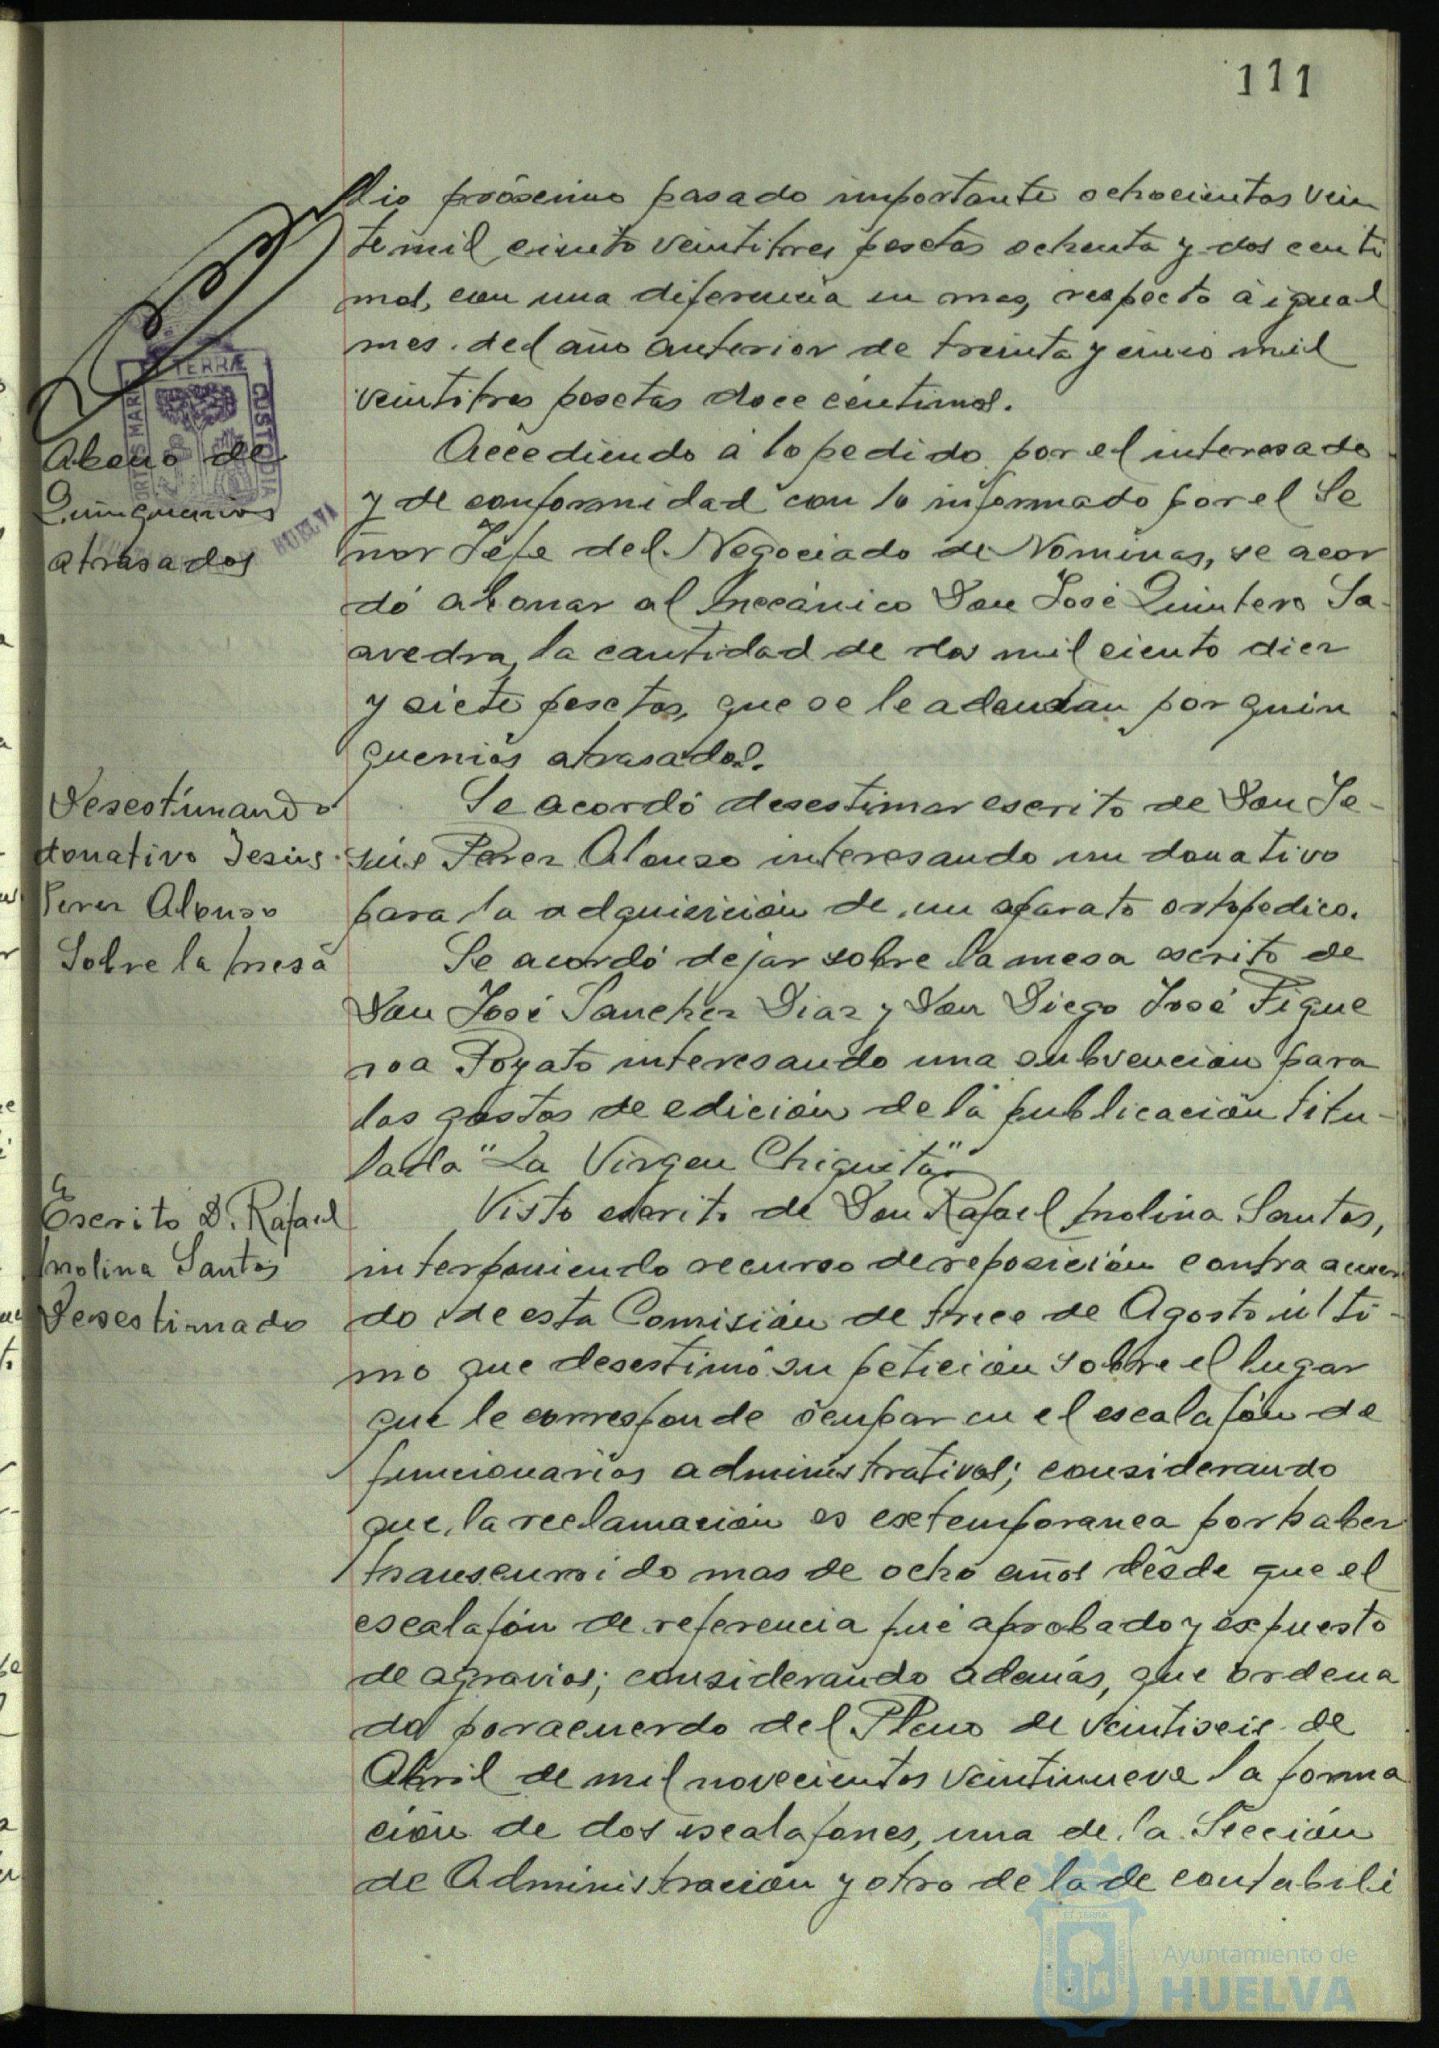 111
lio próximo pasado importante ochocientas vein
te mil ciento veintitres pesetas ochenta y dos centi
mos, con una diferencia en mas, respecto á igual
mes del año anterior de treinta y cinco mil
veintitres pesetas doce céntimos.
Abono de
Quinquenios
atrasados
Accediendo á lo pedido por el interesado
y de conformidad con lo informado por el Se
ñor Jefe del Negociado de Nominas, se acor
dó abonar al mecánico Don José Quintero Sa-
avedra, la cantidad de dos mil ciento diez
y siete pesetas, que se le adeudan por quin
quenios atrasados.
Desestimando
donativo Jesús
Perez Alonso
Se acordó desestimar escrito de Don Je-
sús Perez Alonso interesando un donativo
para la adquisición de un aparato ortopedico.
Sobre la mesa
Se acordó dejar sobre la mesa escrito de
Don José Sanchez Diaz y Don Diego José Figue
roa Poyato interesando una subvención para
los gastos de edición de la publicación titu-
lada "La Virgen Chiquita"
Escrito D. Rafael
Molina Santos
Desestimado
Visto escrito de Don Rafael Molina Santos,
interponiendo recurso de reposición contra acuer
do de esta Comisión de trece de Agosto últi-
mo que desestimó su petición sobre el lugar
que le corresponde ocupar en el escalafón de
funcionarios administrativos; considerando
que la reclamación es extemporanea por haber
transcurrido mas de ocho años desde que el
escalafón de referencia fué aprobado y expuesto
de agravios; considerando además, que ordena
da por acuerdo del Pleno de veintiseis de
Abril de mil novecientos veintinueve la forma
ción de dos escalafones, una de la Sección
de Administración y otro de la de contabili
PORTUS MARIS ET TERRÆ CUSTODIA
HUELVA
Ayuntamiento de
HUELVA